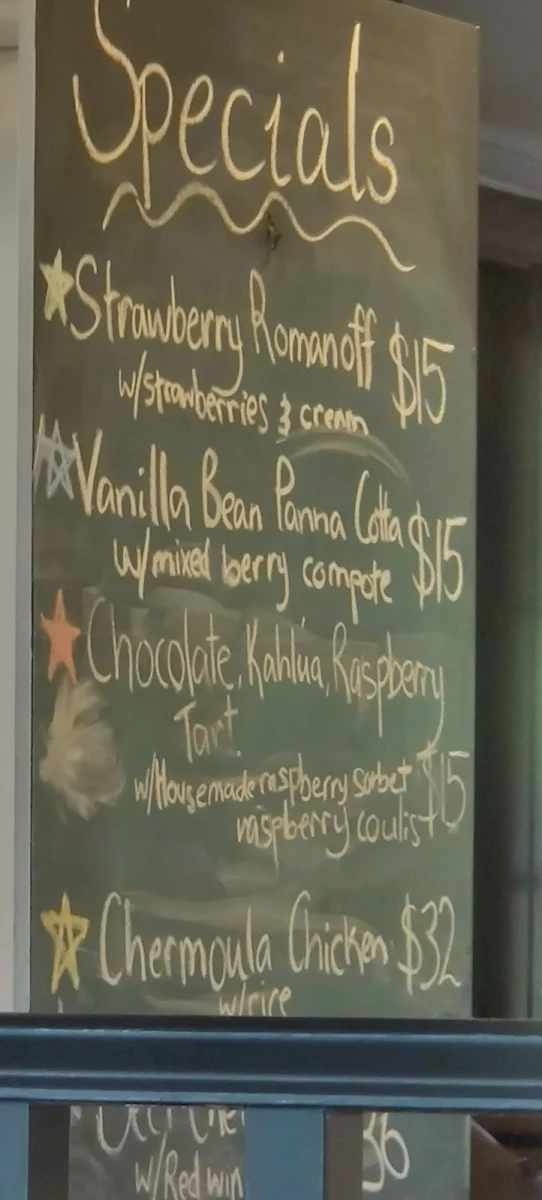 Specials
Strawberry Romanoff $15
w/strawberries & cream
Vanilla Bean Panna Cotta $15
w/mixed berry compote
Chocolate, Kahlúa, Raspberry
Tart
w/Housemade raspberry sorbet $15
raspberry coulis
Chermoula Chicken $32
w/rice
36
w/Red win